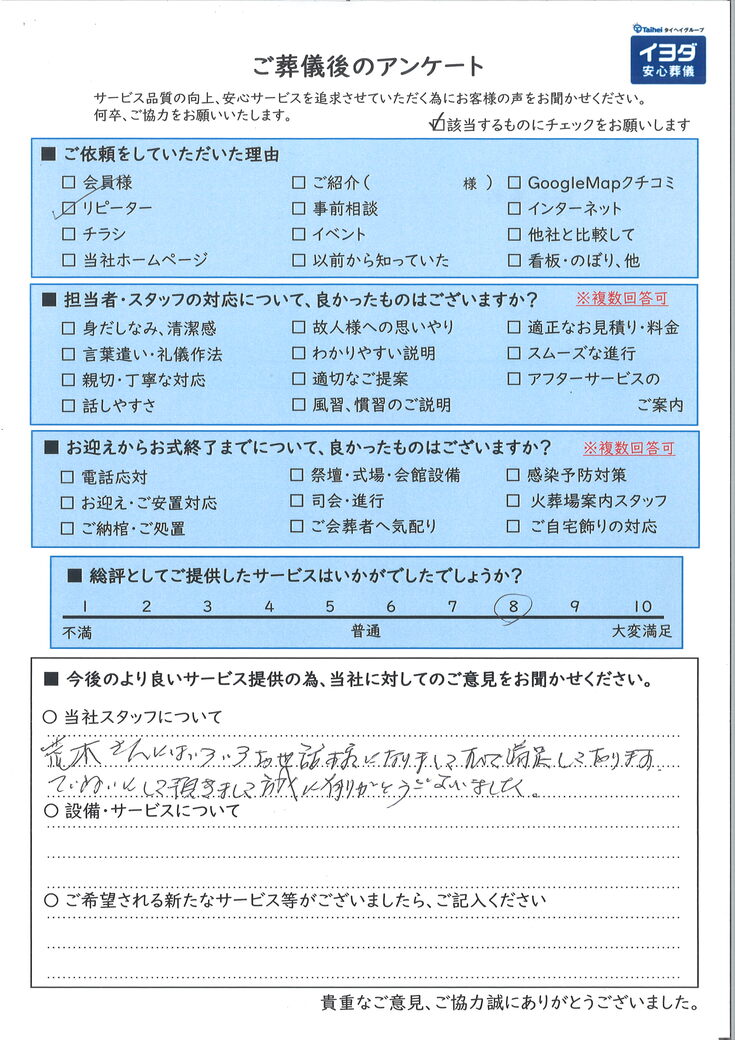 Taihei タイヘイグループ
イヨダ
安心葬儀
ご葬儀後のアンケート
サービス品質の向上、安心サービスを追求させていただく為にお客様の声をお聞かせください。
何卒、ご協力をお願いいたします。
☑該当するものにチェックをお願いします
■ ご依頼をしていただいた理由
□ 会員様 □ ご紹介( 様 ) □ GoogleMapクチコミ
☑ リピーター □ 事前相談 □ インターネット
□ チラシ □ イベント □ 他社と比較して
□ 当社ホームページ □ 以前から知っていた □ 看板・のぼり、他
■ 担当者・スタッフの対応について、良かったものはございますか? ※複数回答可
□ 身だしなみ、清潔感 □ 故人様への思いやり □ 適正なお見積り・料金
□ 言葉遣い・礼儀作法 □ わかりやすい説明 □ スムーズな進行
□ 親切・丁寧な対応 □ 適切なご提案 □ アフターサービスの
□ 話しやすさ □ 風習、慣習のご説明 ご案内
■ お迎えからお式終了までについて、良かったものはございますか? ※複数回答可
□ 電話応対 □ 祭壇・式場・会館設備 □ 感染予防対策
□ お迎え・ご安置対応 □ 司会・進行 □ 火葬場案内スタッフ
□ ご納棺・ご処置 □ ご会葬者へ気配り □ ご自宅飾りの対応
■ 総評としてご提供したサービスはいかがでしたでしょうか?
1 2 3 4 5 6 7 8 9 10
不満 普通 大変満足
■ 今後のより良いサービス提供の為、当社に対してのご意見をお聞かせください。
○ 当社スタッフについて
荒木さんにはいろいろお世話様になりまして 満足しております。
ていねいにして頂きまして誠にありがとうございました。
○ 設備・サービスについて
○ ご希望される新たなサービス等がございましたら、ご記入ください
貴重なご意見、ご協力誠にありがとうございました。